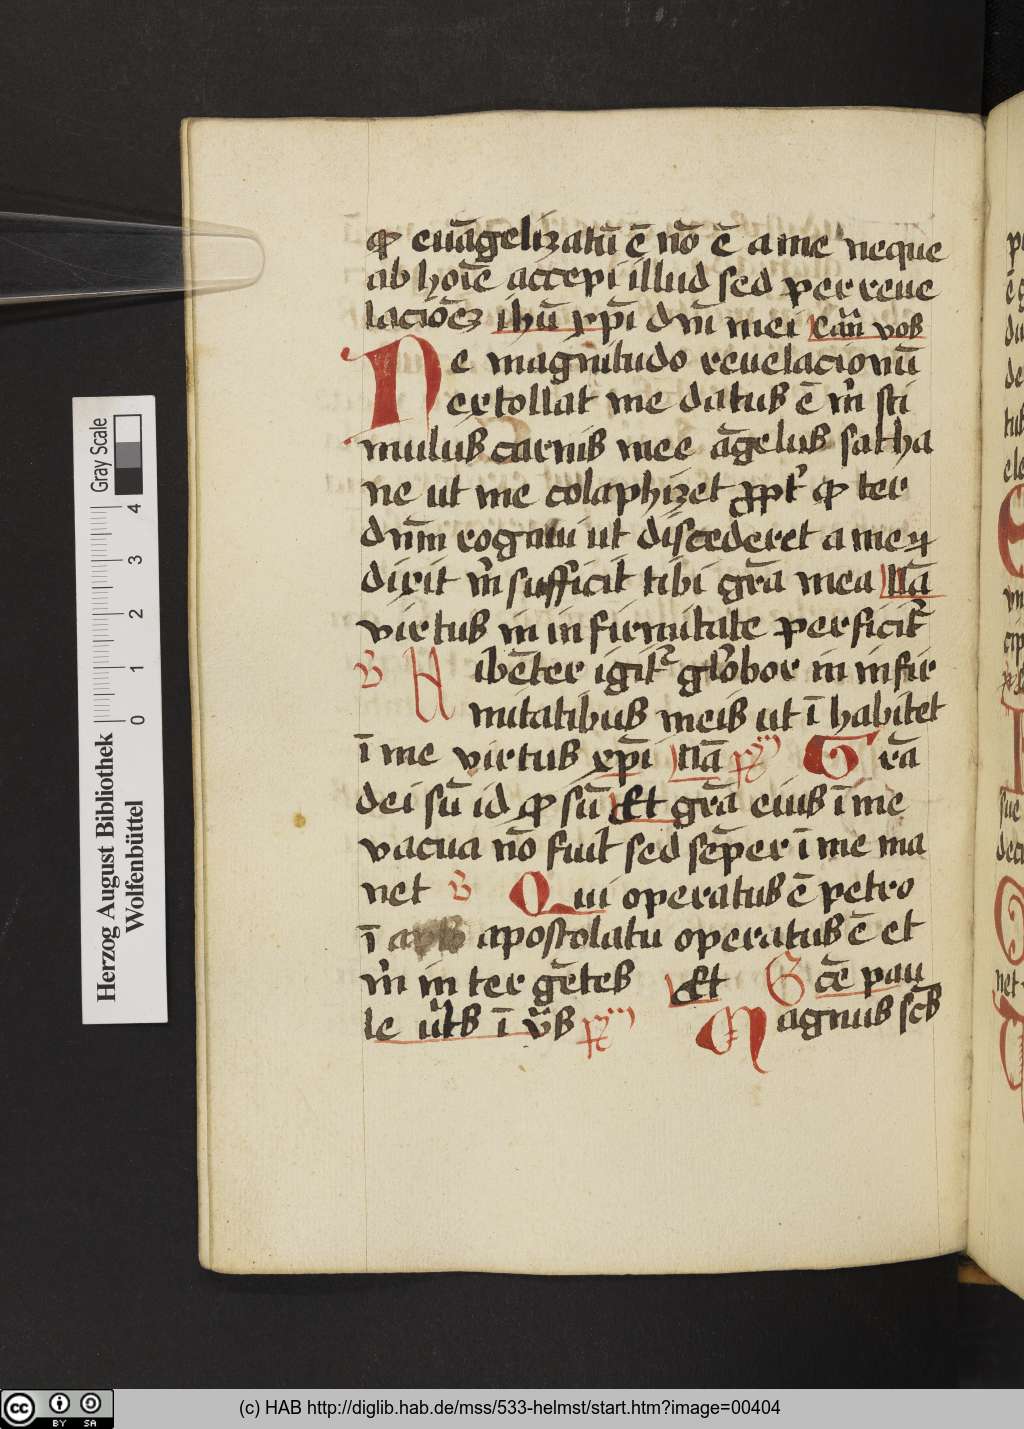 ꝙ euãgelizatũ ē nō ē a me neque
ab hoīe accepi illud sed per reue
lacioēz ihũ xp̄i dn̄i mei Eañ vob
Ne magnitudo reuelacionũ
extollat me datus ē m̉ sti
mulus carnis mee ãgelus satha
ne ut me colaphizet ꝓpt̉ ꝙ ter
dn̄m rogaui ut discederet a me ⁊
dixit m̉ sufficit tibi gr̄a mea Nā
virtus in infirmitate perficit᷑
V Libēter igit᷑ globor in infir
mitatibus meis ut ī habitet
ī me virtus xp̄i Nā p̄s Gra
dei sũ id ꝙ sũ Et gr̄a eius ī me
vacua nō fuit sed sēper ī me ma
net V Qui operatus ē petro
ī apostolatu operatus ē et
m̉ in ter gētes Et S cē pau
le ī p̄s Magnus scs
Herzog August Bibliothek
Wolfenbüttel
Gray Scale
0 1 2 3 4
cc BY SA
(c) HAB http://diglib.hab.de/mss/533-helmst/start.htm?image=00404